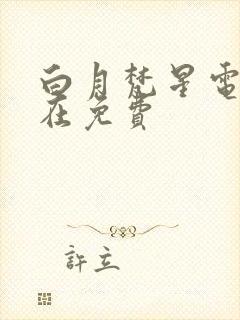 白月梵星電
在免費
許立